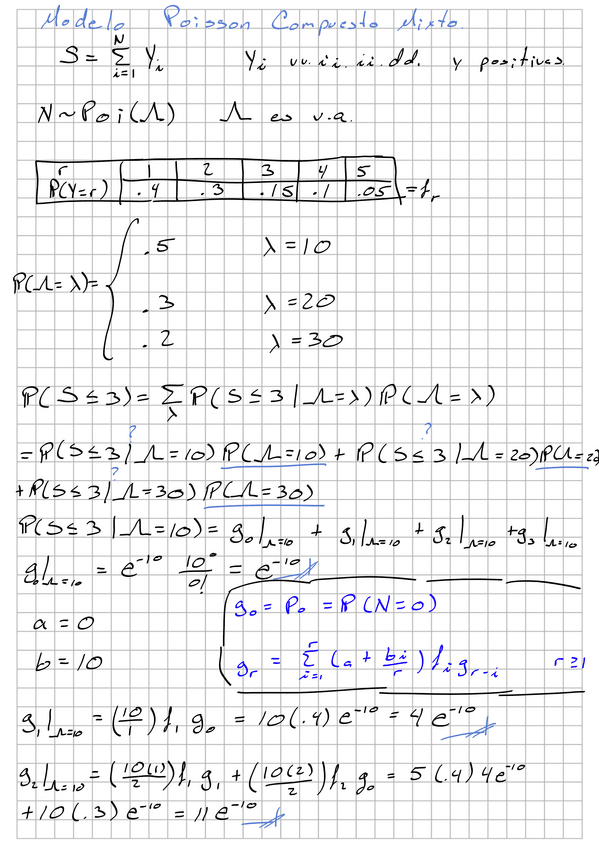 Modelo Poisson Compuesto Mixto
S = Σ_{i=1}^{N} Y_i   Y_i vv.ii. ii.dd. y positivas
N ~ Poi(Λ)   Λ es v.a.
r | 1 | 2 | 3 | 4 | 5
ℙ(Y=r) | .4 | .3 | .15 | .1 | .05 = f_r
.5   λ = 10
ℙ(Λ = λ) = {
.3   λ = 20
.2   λ = 30
ℙ(S ≤ 3) = Σ_λ ℙ(S ≤ 3 | Λ = λ) ℙ(Λ = λ)
? ?
= ℙ(S ≤ 3 | Λ = 10) ℙ(Λ = 10) + ℙ(S ≤ 3 | Λ = 20) ℙ(Λ = 20)
?
+ ℙ(S ≤ 3 | Λ = 30) ℙ(Λ = 30)
ℙ(S ≤ 3 | Λ = 10) = g_0|_{Λ=10} + g_1|_{Λ=10} + g_2|_{Λ=10} + g_3|_{Λ=10}
g_0|_{Λ=10} = e^{-10} 10^0/0! = e^{-10}
g_0 = P_0 = ℙ(N = 0)
a = 0
b = 10
g_r = Σ_{i=1}^{r} (a + bi/r) f_i g_{r-i}   r ≥ 1
g_1|_{Λ=10} = (10/1) f_1 g_0 = 10(.4) e^{-10} = 4 e^{-10}
g_2|_{Λ=10} = (10(1)/2) f_1 g_1 + (10(2)/2) f_2 g_0 = 5 (.4) 4e^{-10}
+ 10(.3) e^{-10} = 11 e^{-10}